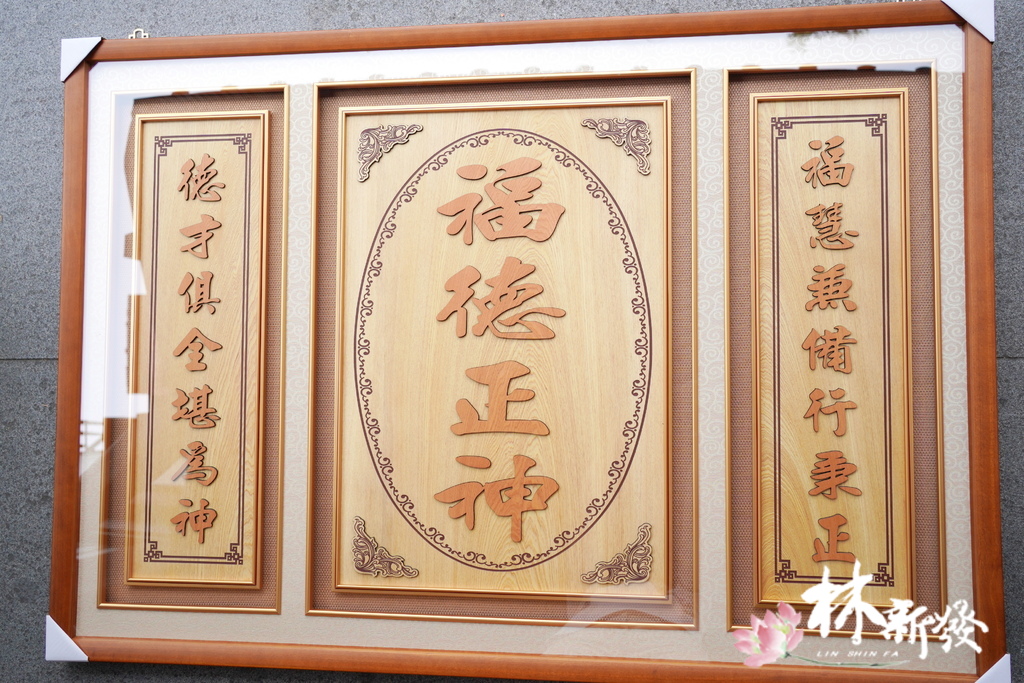 福慧兼備行秉正
福德正神
德才俱全堪為神
林新發
LIN SHIN FA